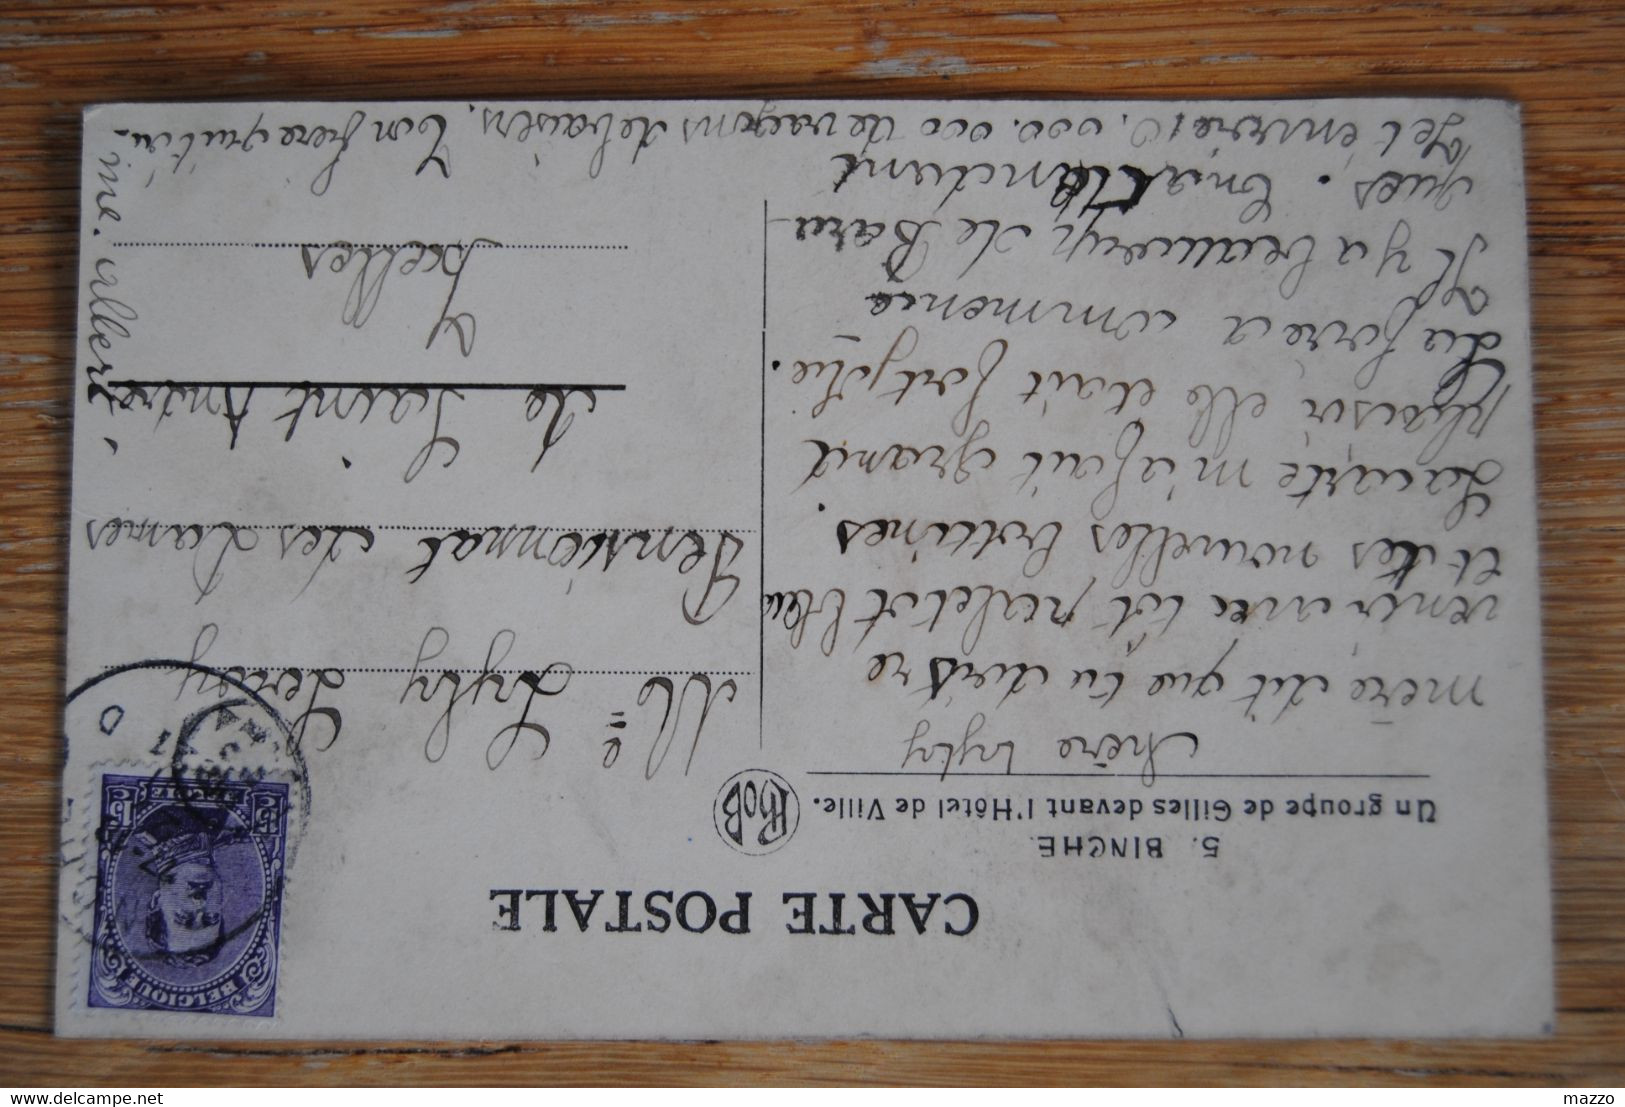 CARTE POSTALE
5. BINCHE.
Un groupe de Gilles devant l'Hôtel de Ville.
RoB
chère Lyly
mère dit que tu dois re
venir avec tot paletot bleu
et tes nouvelles bottines.
La carte m'a fait grand
plaisir elle était fort jolie.
La foire a commencé
Il y a beaucoup de Bara
ques.
Je t'envoie 10.000.000 de wagons de baisers. Ton frère qui t'ai
me. Albert.
Mlle Lyly Leroy
Pensionnat des Dames
de Saint André
Ixelles
BELGIQUE
15 15
BELGIE